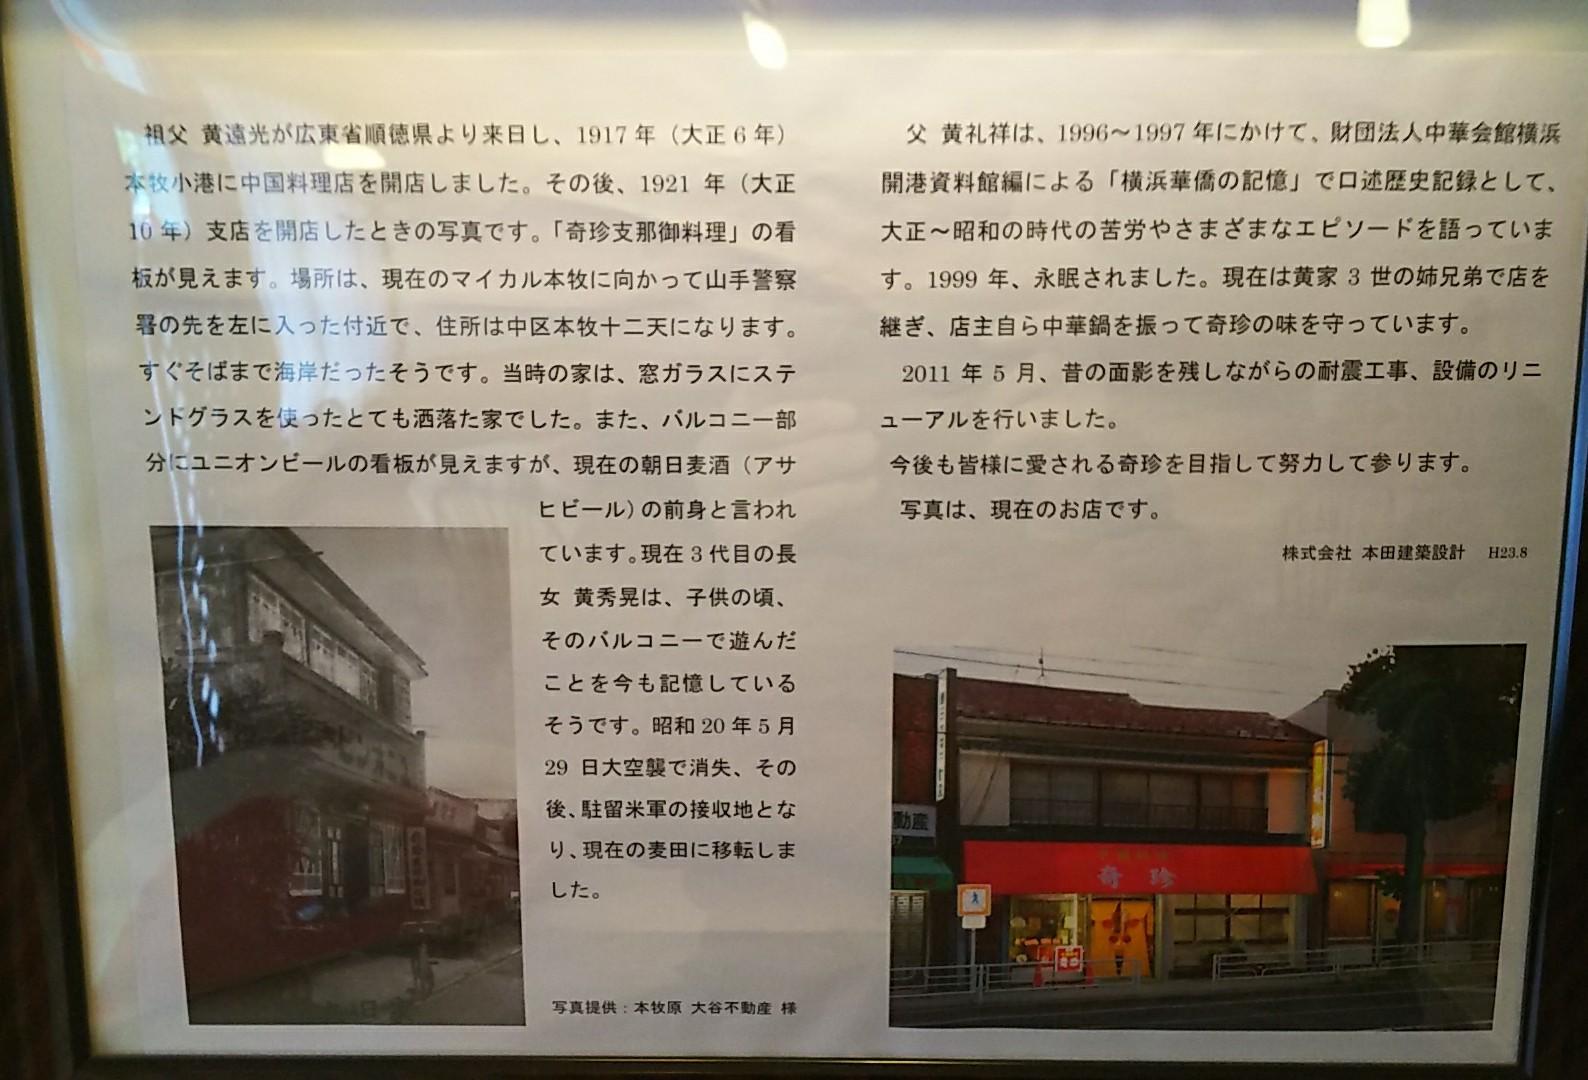 祖父 黄遠光が広東省順徳県より来日し、1917 年（大正 6 年）
本牧小港に中国料理店を開店しました。その後、1921 年（大正
10 年）支店を開店したときの写真です。「奇珍支那御料理」の看
板が見えます。場所は、現在のマイカル本牧に向かって山手警察
署の先を左に入った付近で、住所は中区本牧十二天になります。
すぐそばまで海岸だったそうです。当時の家は、窓ガラスにステ
ンドグラスを使ったとても洒落た家でした。また、バルコニー部
分にユニオンビールの看板が見えますが、現在の朝日麦酒（アサ
ヒビール）の前身と言われ
ています。現在 3 代目の長
女 黄秀晃は、子供の頃、
そのバルコニーで遊んだ
ことを今も記憶している
そうです。昭和 20 年 5 月
29 日大空襲で消失、その
後、駐留米軍の接収地とな
り、現在の麦田に移転しま
した。
写真提供：本牧原 大谷不動産 様
父 黄礼祥は、1996～1997 年にかけて、財団法人中華会館横浜
開港資料館編による「横浜華僑の記憶」で口述歴史記録として、
大正～昭和の時代の苦労やさまざまなエピソードを語っていま
す。1999 年、永眠されました。現在は黄家 3 世の姉兄弟で店を
継ぎ、店主自ら中華鍋を振って奇珍の味を守っています。
2011 年 5 月、昔の面影を残しながらの耐震工事、設備のリニ
ューアルを行いました。
今後も皆様に愛される奇珍を目指して努力して参ります。
写真は、現在のお店です。
株式会社 本田建築設計 H23.8
動産
奇珍